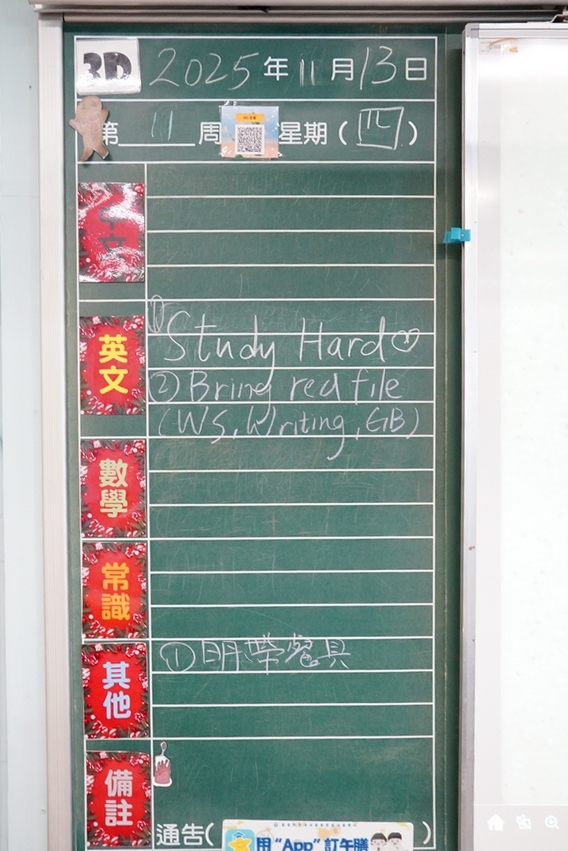 3D 2025年11月13日
第 11 周 星期（四）
中文
英文
① Study Hard♡
② Bring red file
(WS, Writing, GB)
數學
常識
其他
① 明帶餐具
備註
通告(
用"App"訂午膳
)